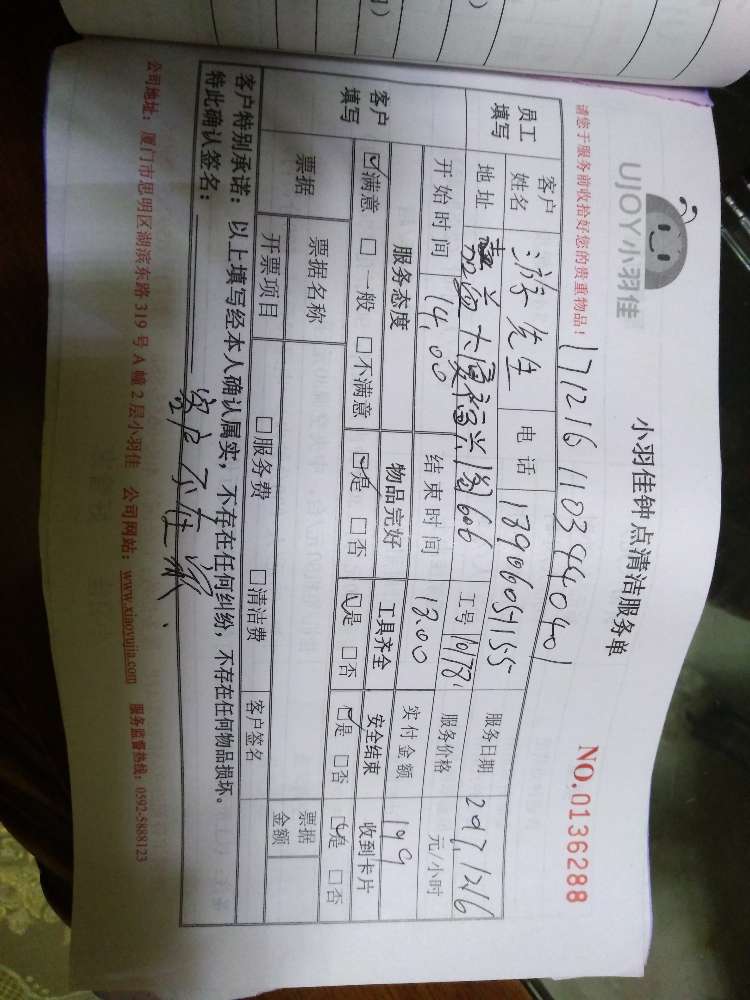 UJOY小羽佳
小羽佳钟点清洁服务单
NO.0136288
请您于服务前收拾好您的贵重物品!
1712161103440401
员工填写
客户姓名 游先生 电话 18906051155 服务日期 2017.1216
地址 嘉益大厦福兴阁606 工号 10178 服务价格 元/小时
开始时间 14.00 结束时间 18.00 实付金额 149
客户填写
服务态度 物品完好 工具齐全 安全结束 收到卡片
☑满意 □一般 □不满意 ☑是 □否 ☑是 □否 ☑是 □否 ☑是 □否
票据 票据名称 票据金额
开票项目 □服务费 □清洁费 客户签名
客户特别承诺:以上填写经本人确认属实,不存在任何纠纷,不存在任何物品损坏。
特此确认签名: 客户不在家
公司地址:厦门市思明区湖滨东路319号A幢2层小羽佳 公司网站:www.xiaoyujia.com 服务监督热线:0592-5888123